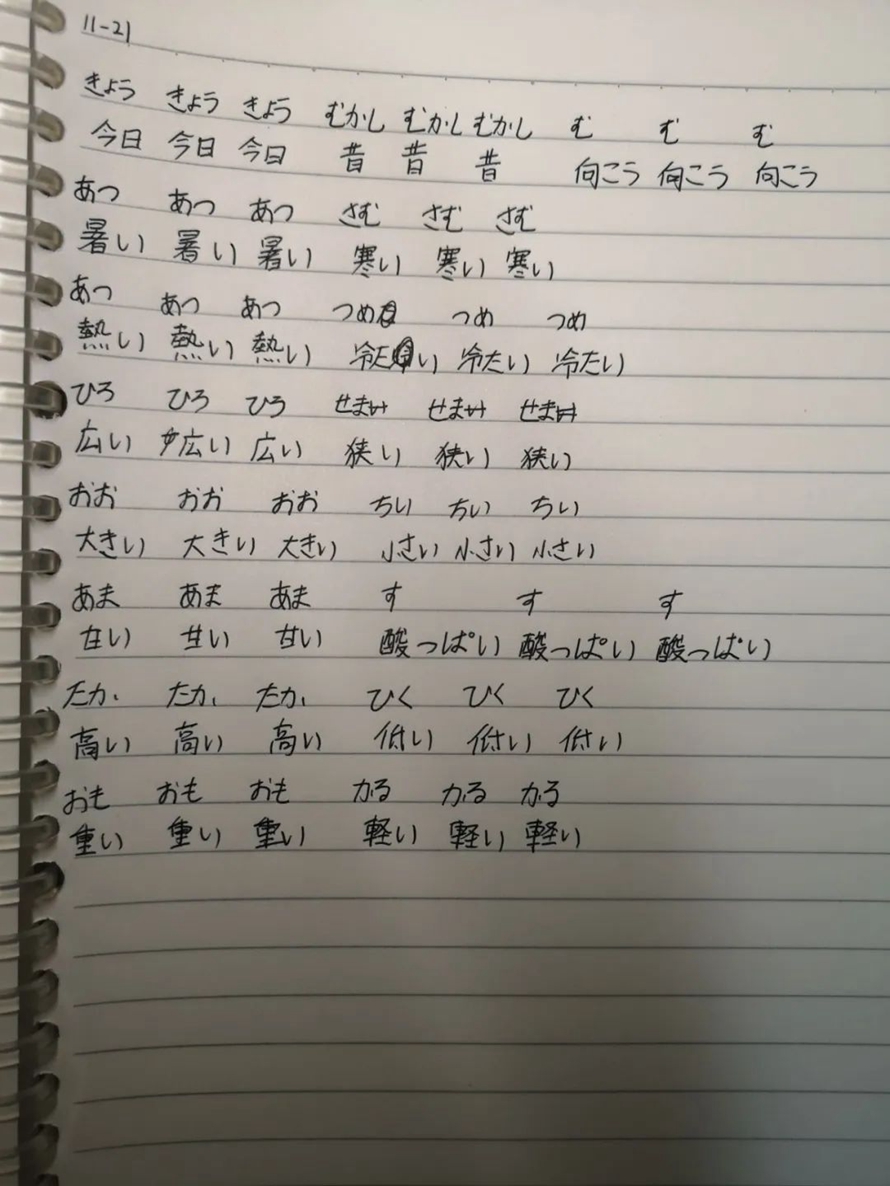 11-21
きょう きょう きょう むかし むかし むかし む む む
今日 今日 今日 昔 昔 昔 向こう 向こう 向こう
あつ あつ あつ さむ さむ さむ
暑い 暑い 暑い 寒い 寒い 寒い
あつ あつ あつ つめ つめ つめ
熱い 熱い 熱い 冷たい 冷たい 冷たい
ひろ ひろ ひろ せま せま せま
広い 広い 広い 狭い 狭い 狭い
おお おお おお ちい ちい ちい
大きい 大きい 大きい 小さい 小さい 小さい
あま あま あま す す す
甘い 甘い 甘い 酸っぱい 酸っぱい 酸っぱい
たか たか たか ひく ひく ひく
高い 高い 高い 低い 低い 低い
おも おも おも かる かる かる
重い 重い 重い 軽い 軽い 軽い